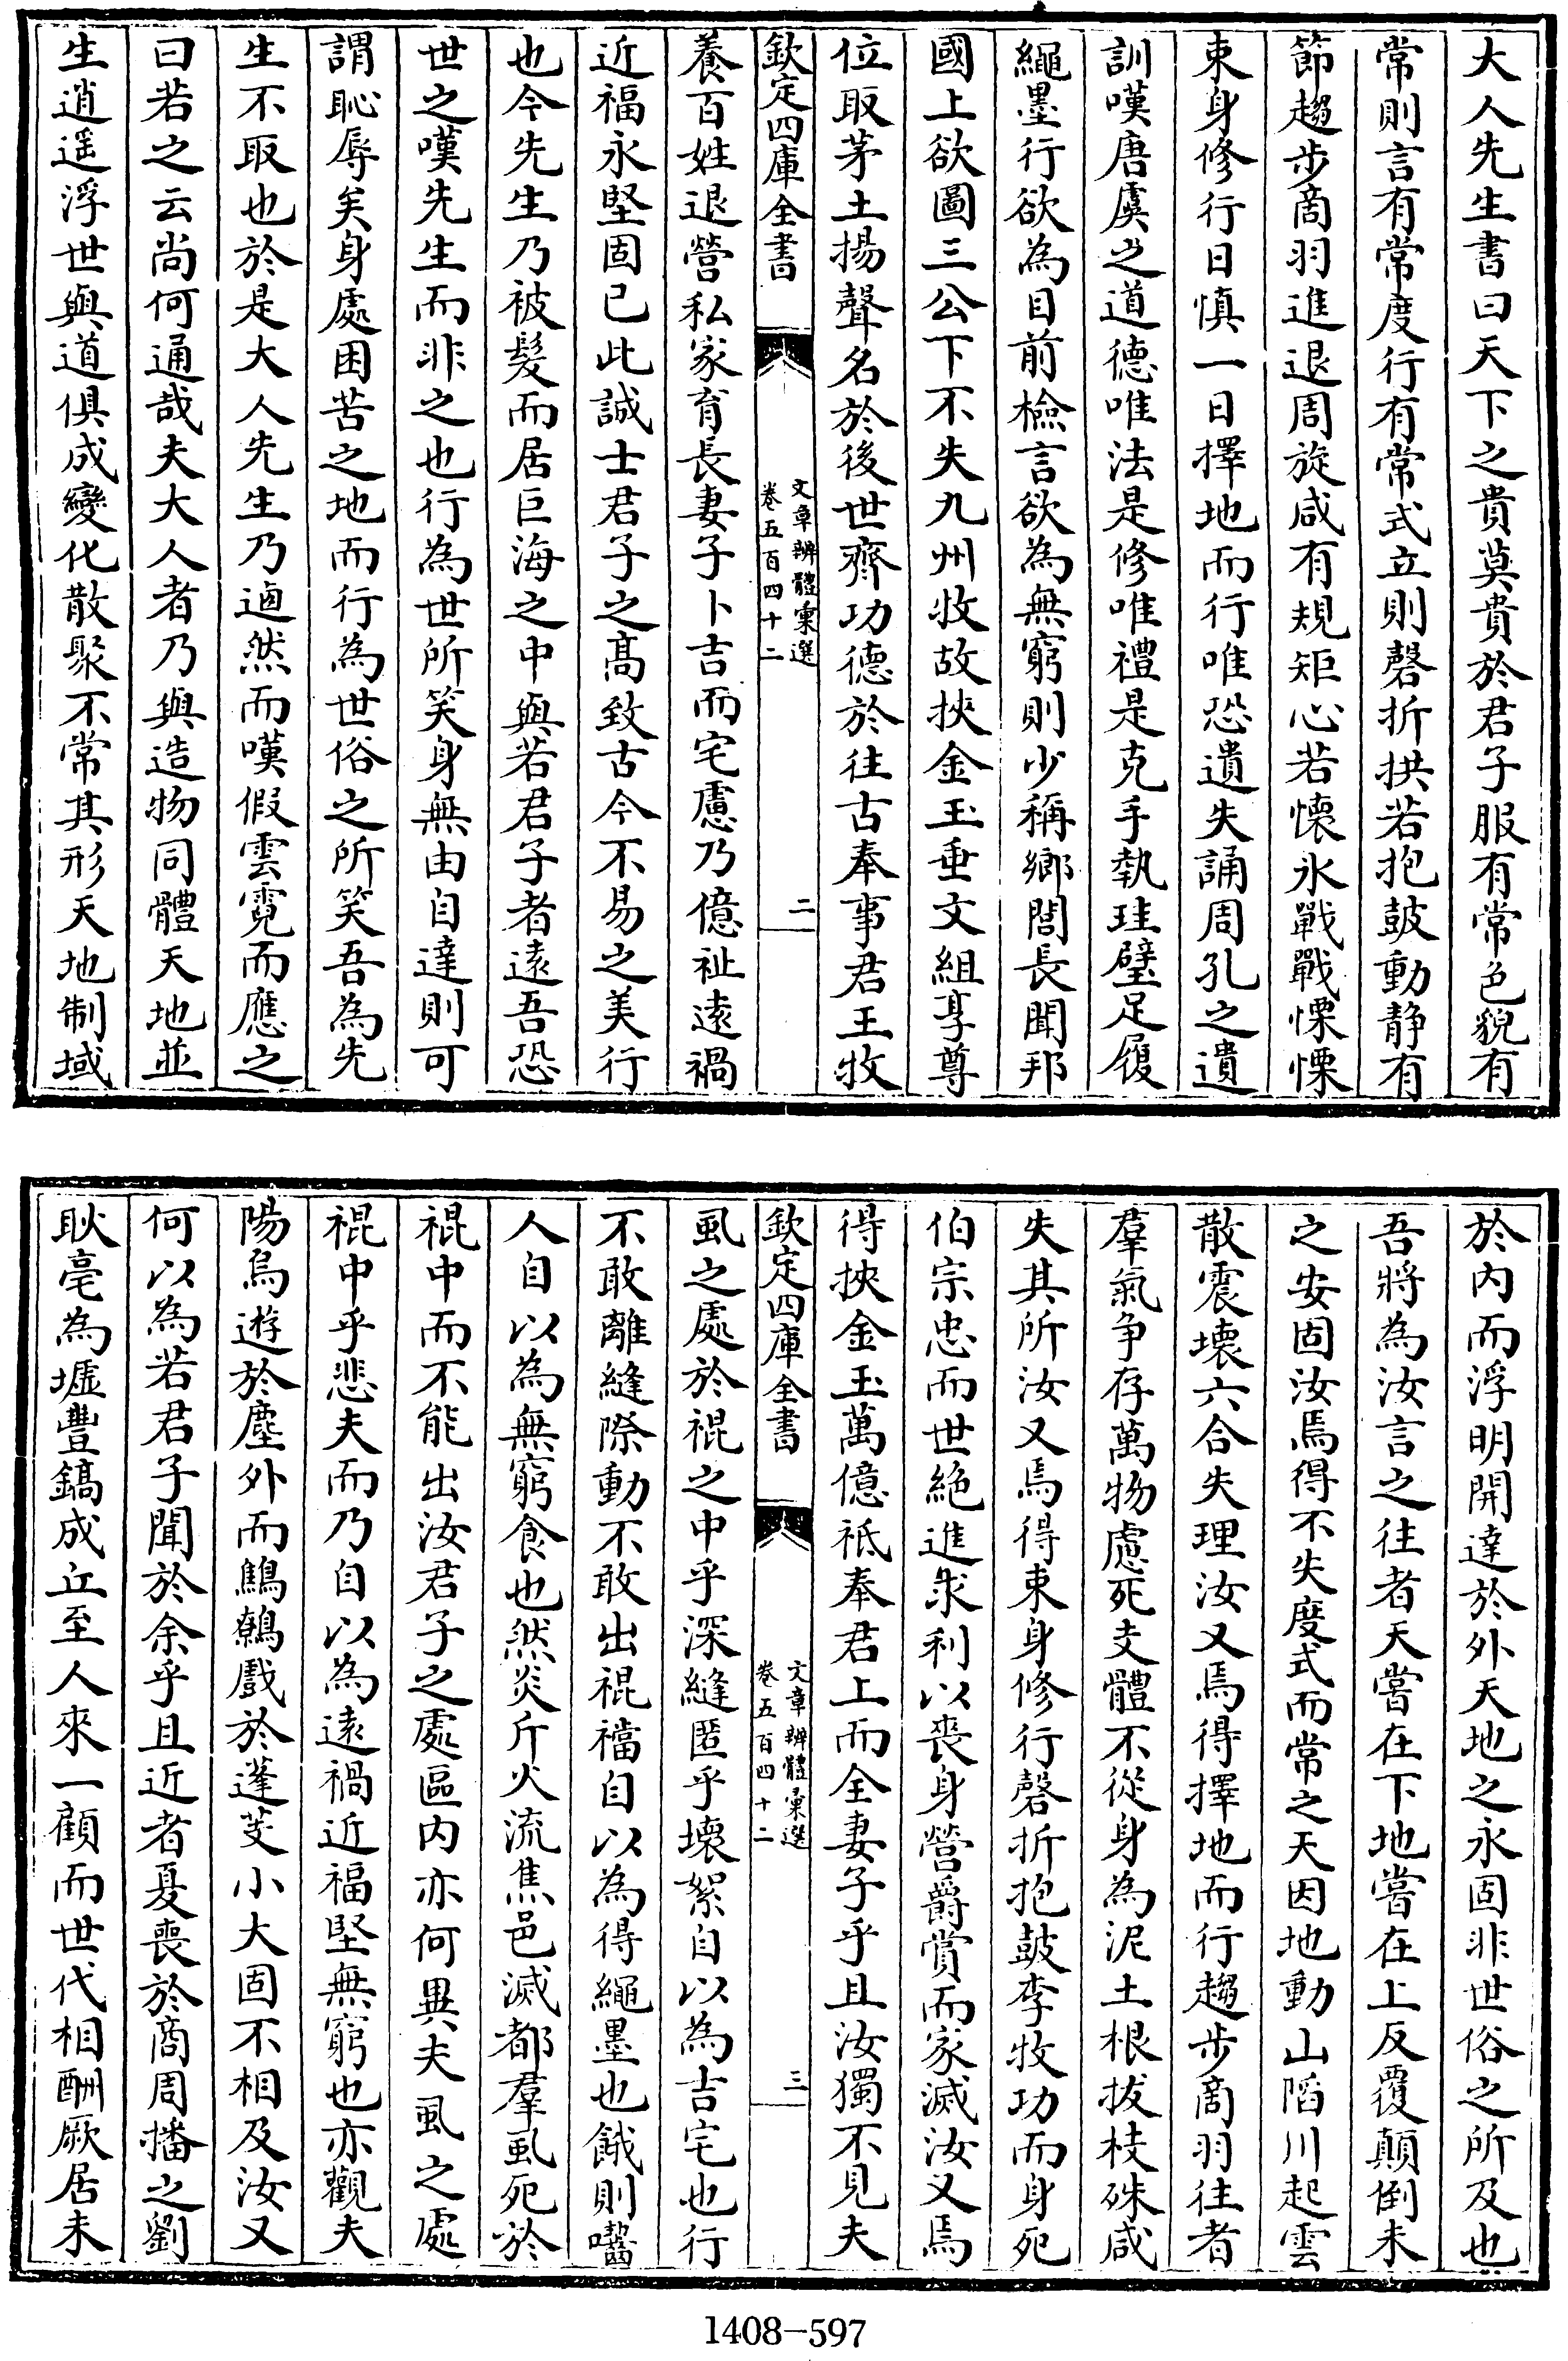 大人先生書曰天下之貴莫貴於君子服有常色貌有
常則言有常度行有常式立則磬折拱若抱鼓動静有
節趨步商羽進退周旋咸有規矩心若懷氷戰戰慄慄
束身修行日慎一日擇地而行唯恐遺失誦周孔之遺
訓嘆唐虞之道德唯法是修唯禮是克手執珪璧足履
繩墨行欲為目前檢言欲為無窮則少稱鄉閭長聞邦
國上欲圖三公下不失九州牧故挾金玉垂文組享尊
位取茅土揚聲名於後世齊功德於往古奉事君王牧
欽定四庫全書
文章辨體彙選
卷五百四十二
二
養百姓退營私家育長妻子卜吉而宅慮乃億祉遠禍
近福永堅固已此誠士君子之髙致古今不易之美行
也今先生乃被髪而居巨海之中與若君子者遠吾恐
世之嘆先生而非之也行為世所笑身無由自達則可
謂恥辱矣身處困苦之地而行為世俗之所笑吾為先
生不取也於是大人先生乃逌然而嘆假雲霓而應之
曰若之云尚何通哉夫大人者乃與造物同體天地並
生逍遥浮世與道俱成變化散聚不常其形天地制域
於内而浮明開達於外天地之永固非世俗之所及也
吾將為汝言之往者天嘗在下地嘗在上反覆顛倒未
之安固汝焉得不失度式而常之天因地動山陷川起雲
散震壊六合失理汝又焉得擇地而行趨步商羽往者
羣氣争存萬物慮死支體不從身為泥土根拔枝殊咸
失其所汝又焉得束身修行磬折抱鼓李牧功而身死
伯宗忠而世絶進求利以喪身營爵賞而家滅汝又焉
得挾金玉萬億祗奉君上而全妻子乎且汝獨不見夫
欽定四庫全書
文章辨體彙選
卷五百四十二
三
虱之處於裩之中乎深縫匿乎壊絮自以為吉宅也行
不敢離縫際動不敢出裩襠自以為得繩墨也餓則囓
人自以為無窮食也然炎斤火流焦邑滅都羣虱死於
裩中而不能出汝君子之處區内亦何異夫虱之處
裩中乎悲夫而乃自以為遠禍近福堅無窮也亦觀夫
陽烏遊於塵外而鷦鷯戲於蓬芰小大固不相及汝又
何以為若君子聞於余乎且近者夏喪於商周播之劉
耿亳為墟豐鎬成丘至人來一顧而世代相酬厥居未
1408-597